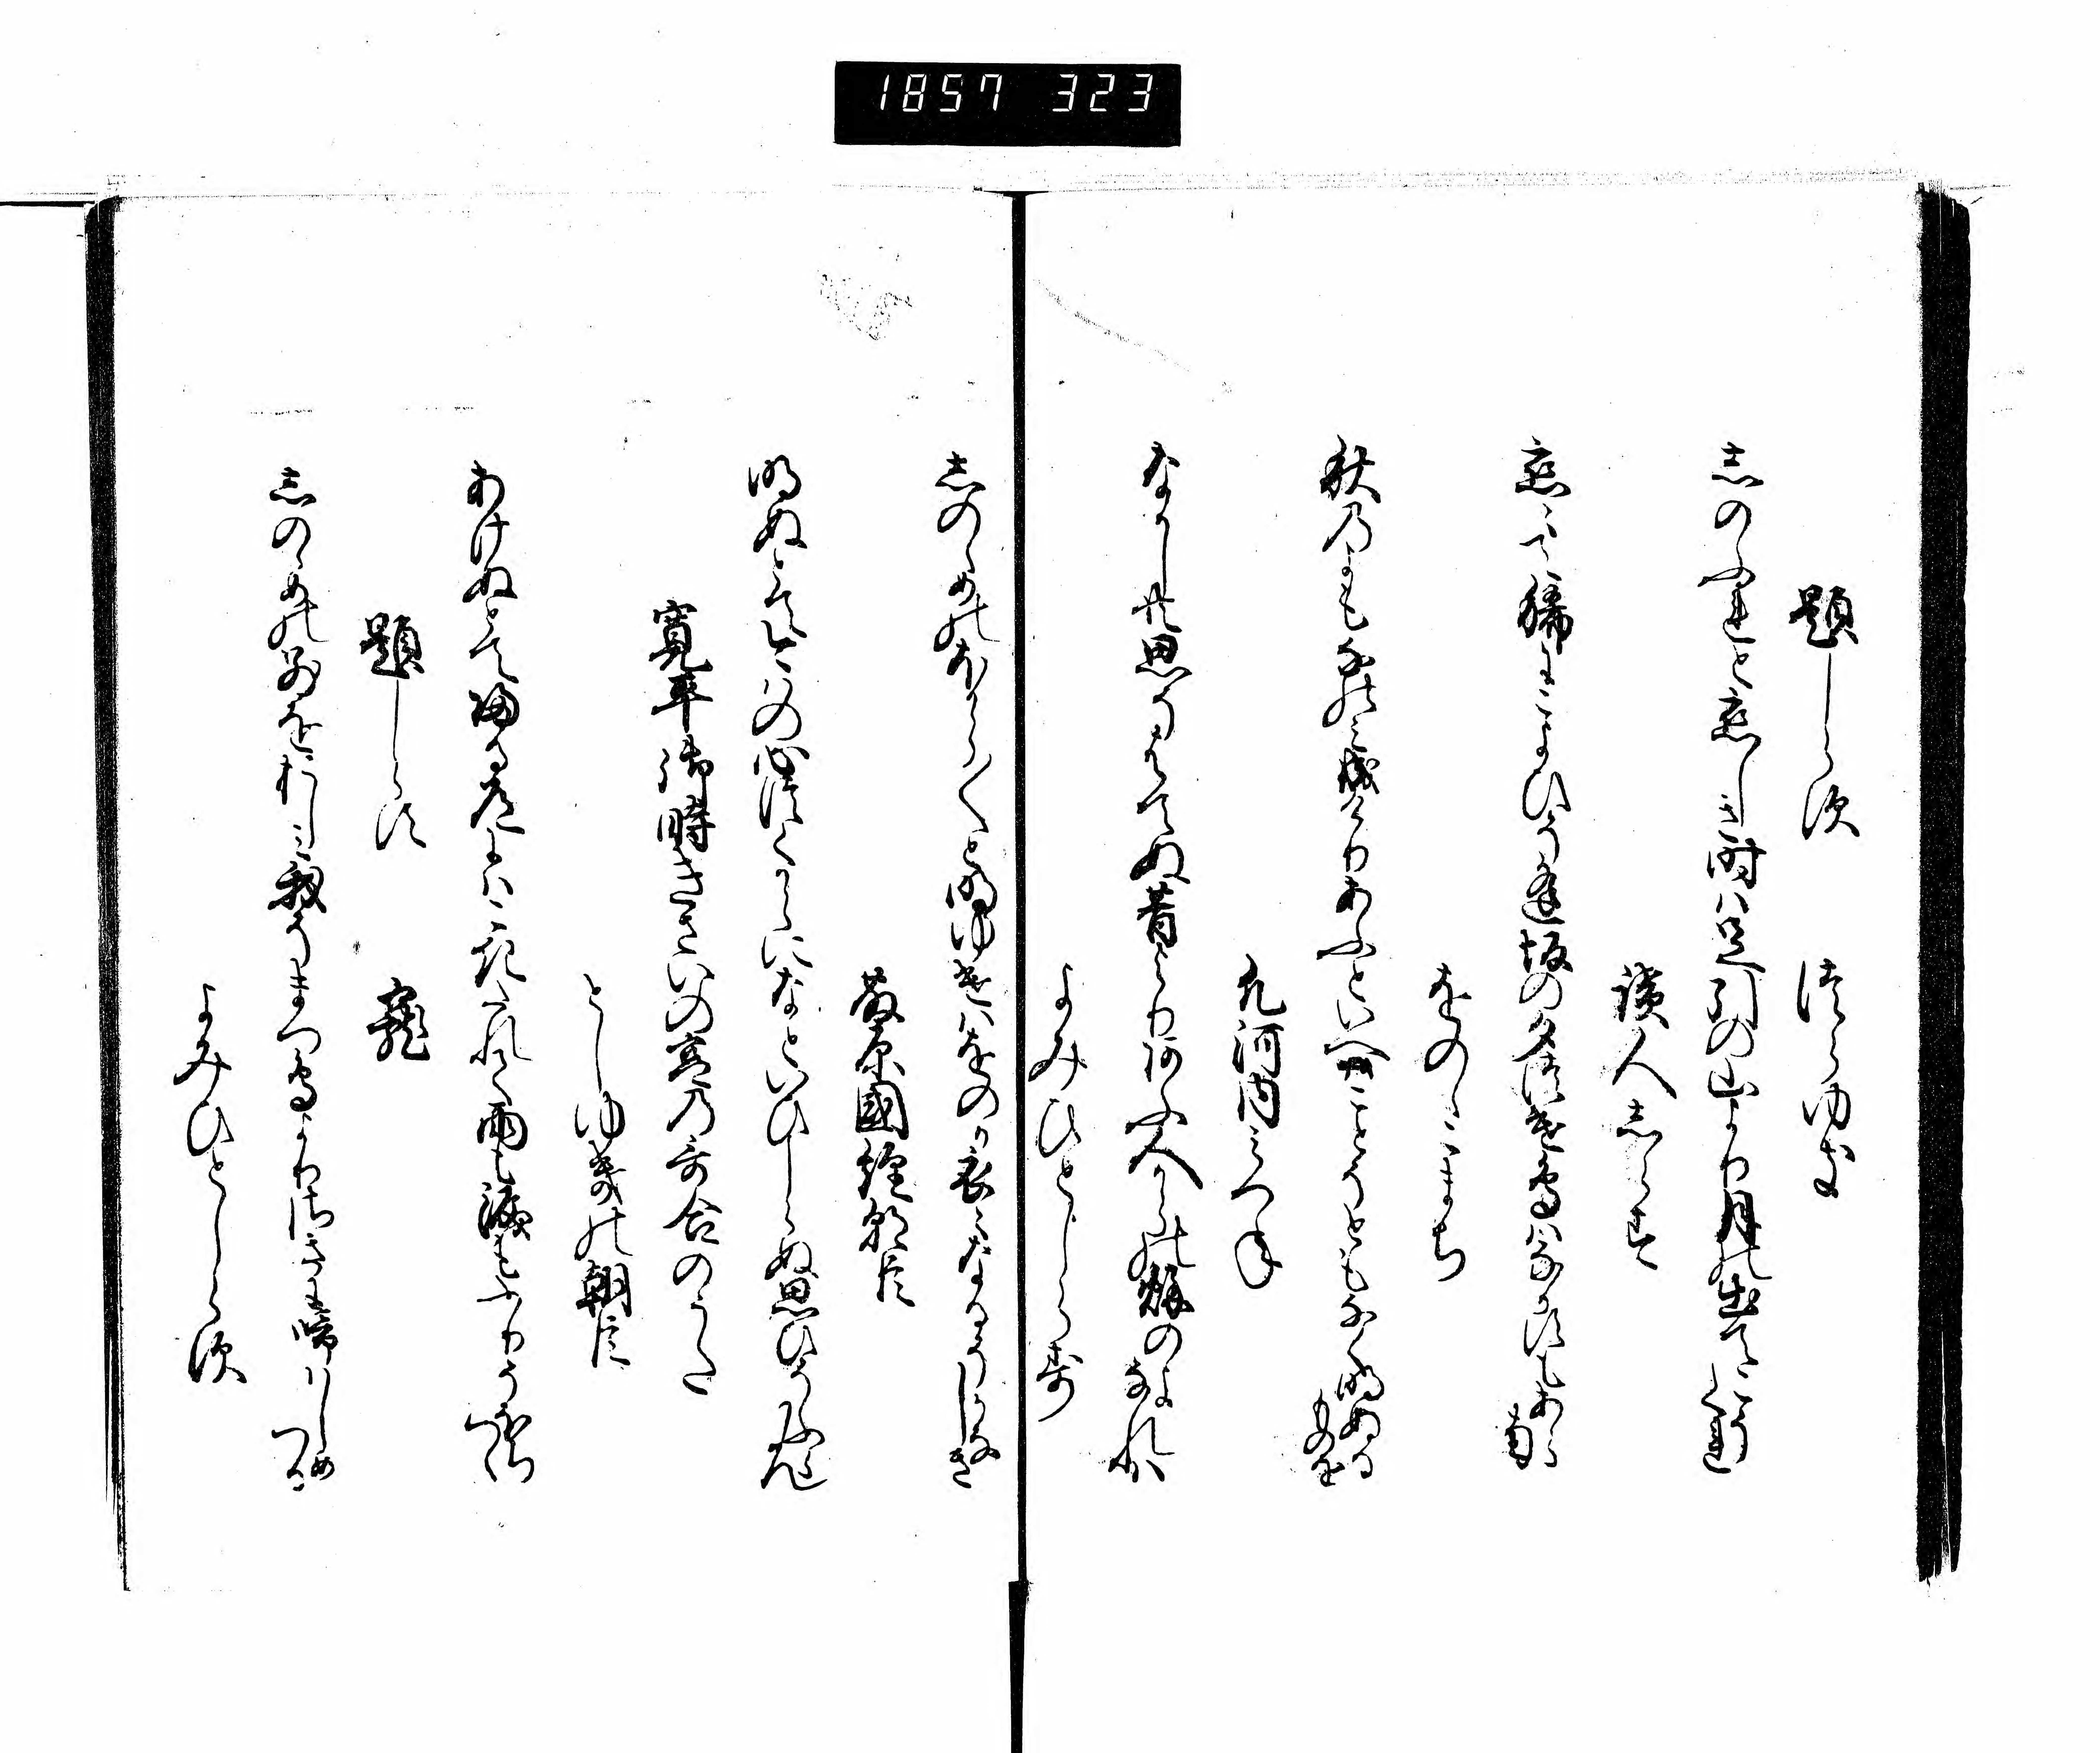 1857 323
題しらす　つらゆき
志のふれと恋しき時は足引の山より月の出てこそくれ
読人志らす
恋〻て稀にこよひそ逢坂の夕つけ鳥はなかすもあらなん
をのゝこまち
秋の夜も名のみ成けりあふといへはことそともなく明ぬるものを
凡河内みつね
なかしとも思ひそはてぬ昔より阿ふ人からの秋のよなれは
よみひとしらす
志のゝめのほから〳〵と明ゆけはをのか衣〻なるそかなしき
藤原國経朝臣
明ぬとて今はの心つくからになといひしらぬ思ひそふらん
寛平御時きさいの宮の哥合のうた
としゆきの朝臣
あけぬとて帰る道にはこきたれて雨も涙もふりそほちつゝ
題しらす　寵
志のゝめの別をおしみ我そまつ鳥よりさきに啼はしめつる
よみひとしらす